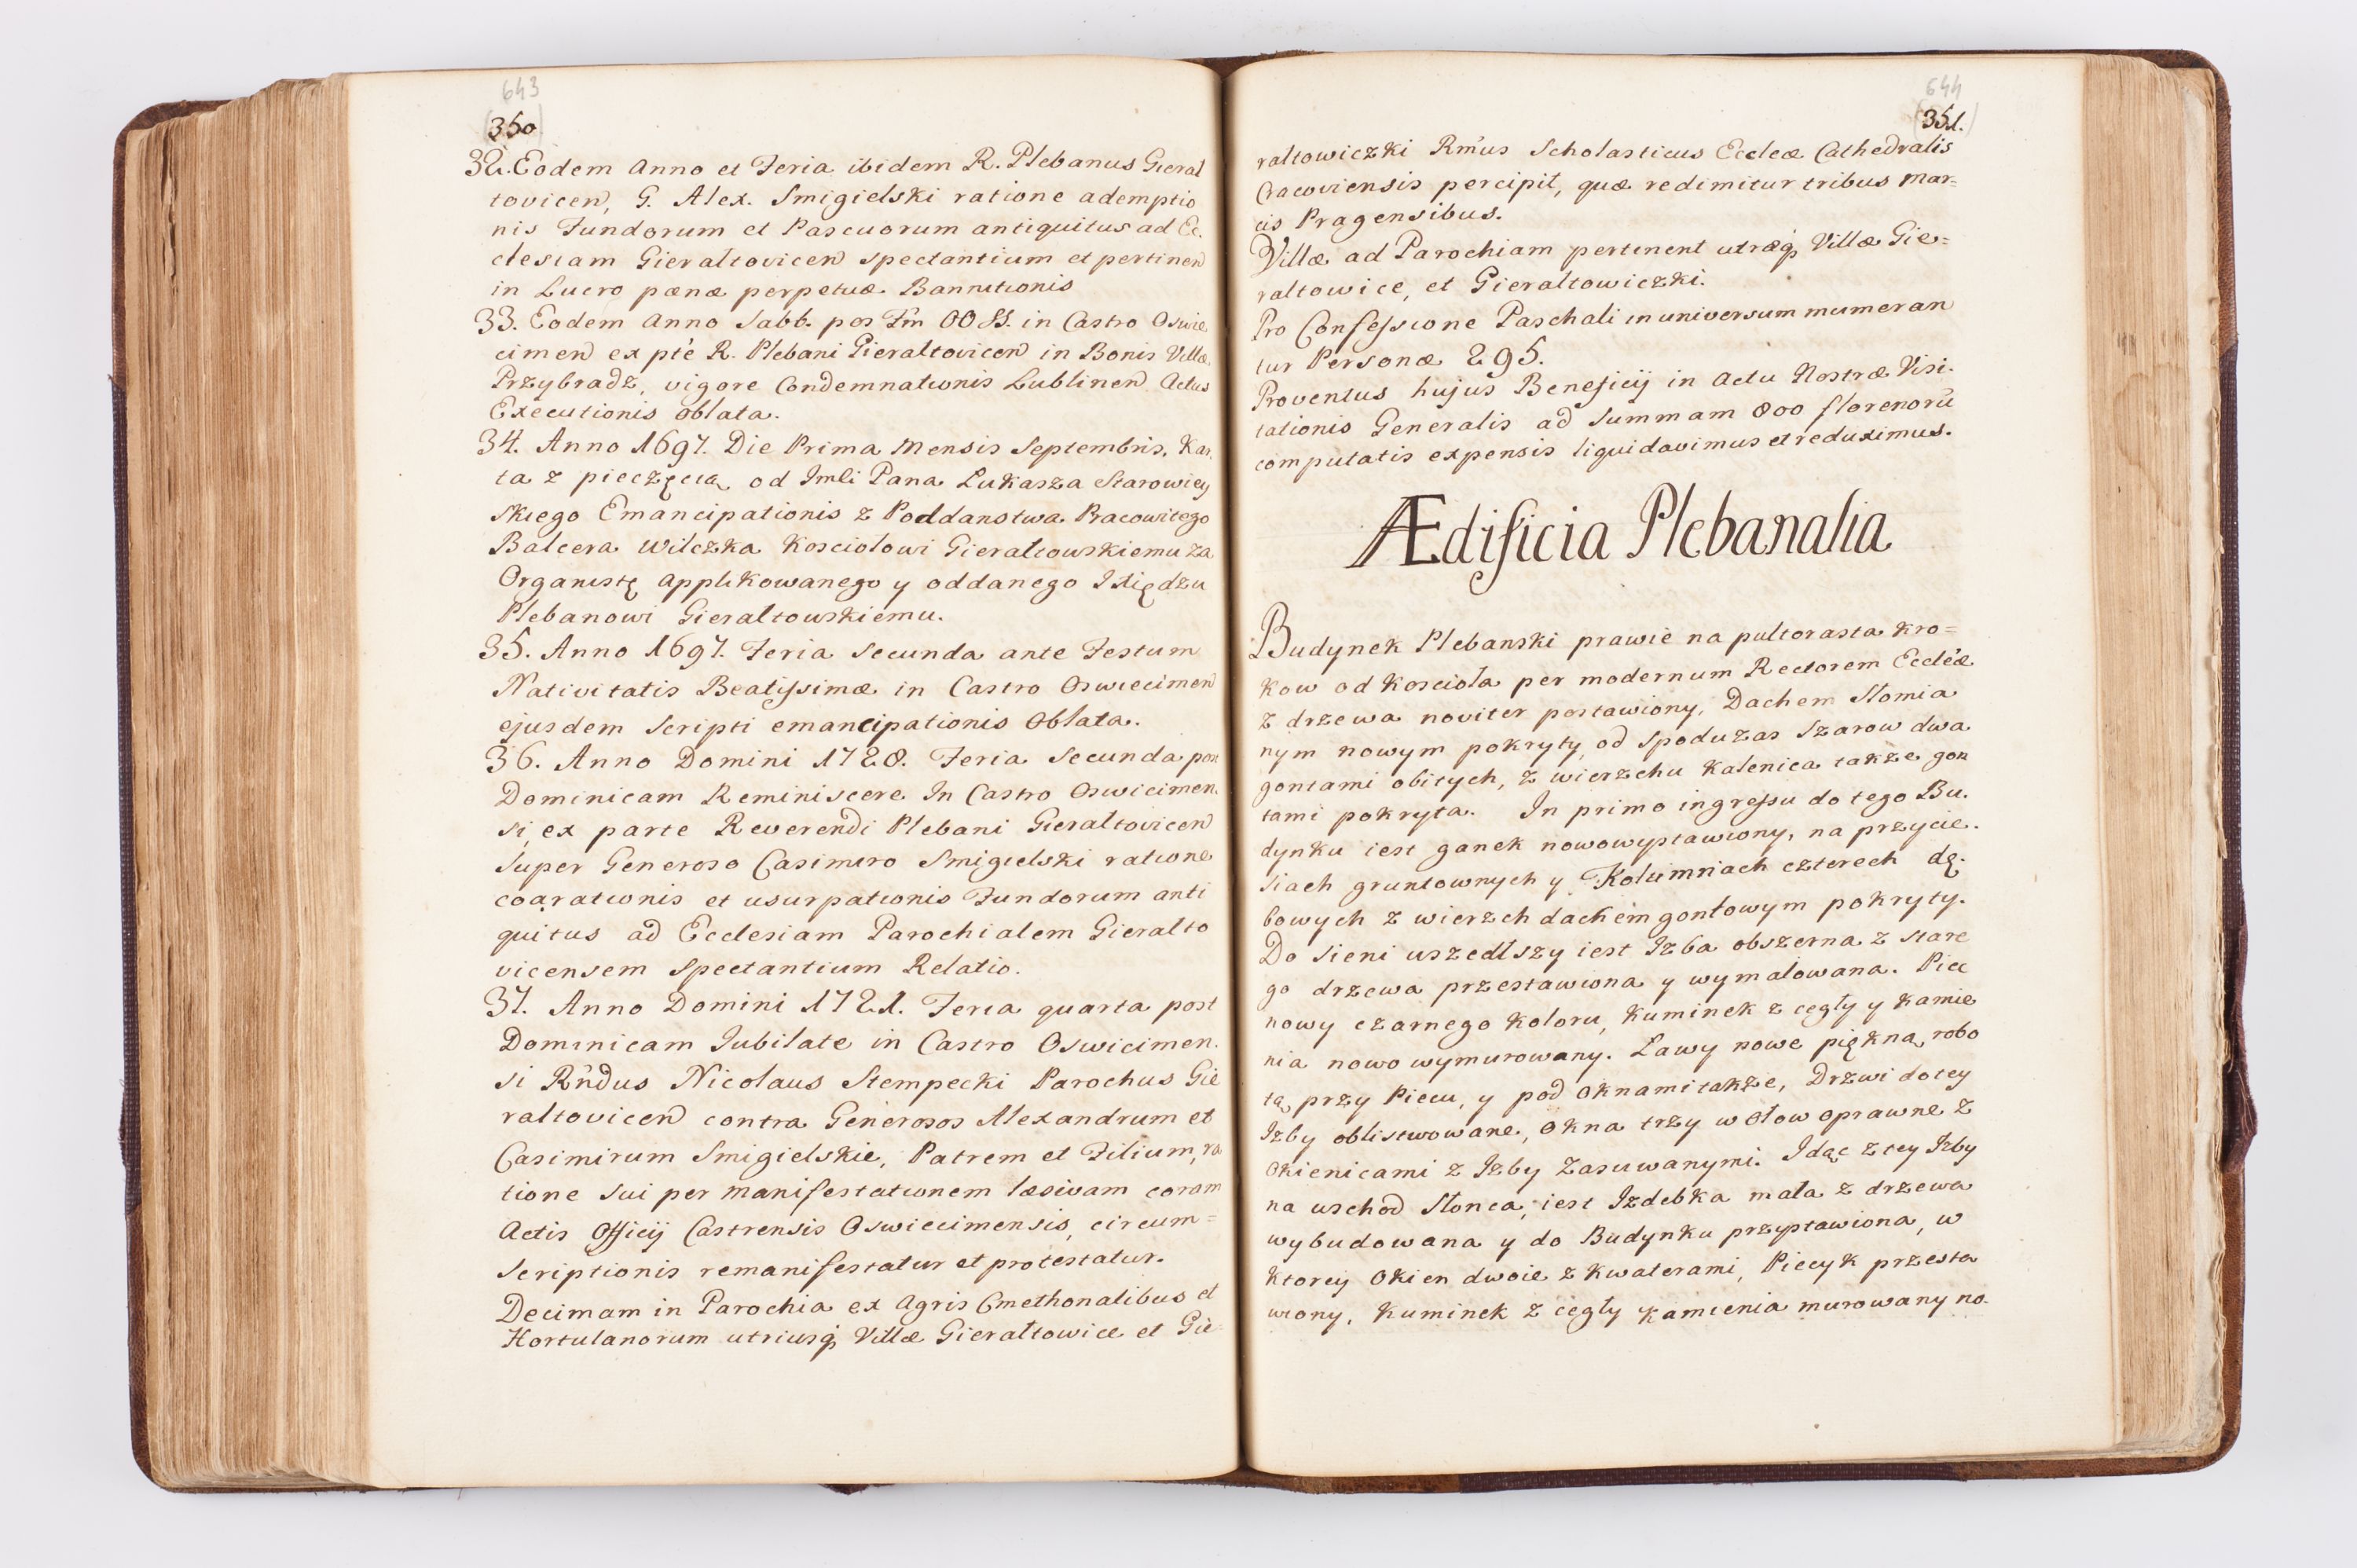 643
350
32. Eodem Anno et Feria ibidem R. Plebanus Gieral
tovicen, G. Alex. Smigielski ratione ademptio
nis Fundorum et Pascuorum antiquitus ad Ec.
clesiam Gieraltovicen spectantium et pertinen
in Lucro pœnæ perpetuæ Bannitionis
33. Eodem Anno Sabb. pos Fm OO SS. in Castro Oswie
cimen ex pte R. Plebani Gieraltovicen in Bonis Villæ
Przybradz, vigore Condemnationis Lublinen Actus
Executionis oblata.
34. Anno 1697. Die Prima Mensis Septembris, Kar.
ta z pieczęcią od Imli Pana Lukasza Starowiey
skiego Emancipationis z Poddanstwa Pracowitego
Balcera Wilczka Kosciolowi Gieraltowskiemu za
Organistę applikowanego y oddanego IXiędzu
Plebanowi Gieraltowskiemu.
35. Anno 1697. Feria Secunda ante Festum
Nativitatis Beatissimæ in Castro Oswiecimen
ejusdem Scripti emancipationis Oblata.
36. Anno Domini 1728. Feria Secunda post
Dominicam Reminiscere In Castro Oswicimen.
si, ex parte Reverendi Plebani Gieraltovicen
Super Generoso Casimiro Smigielski ratione
coarationis et usurpationis Fundorum anti
quitus ad Ecclesiam Parochialem Gieralto
vicensem spectantium Relatio.
37. Anno Domini 1721. Feria quarta post
Dominicam Jubilate in Castro Oswicimen.
si Rndus Nicolaus Stempecki Parochus Gie
raltovicen contra Generosos Alexandrum et
Casimirum Smigielskie, Patrem et Filium, ra
tione sui per manifestationem læsivam coram
Actis Officij Castrensis Oswiecimensis, circum=
scriptionis remanifestatur et protestatur.
Decimam in Parochia ex Agris Cmethonalibus et
Hortulanorum utriusq; Villæ Gierałtowice et Gie
644
351.
raltowiczki Rmus Scholasticus Eccleæ Cathedralis
Cracoviensis percipit, quæ redimitur tribus Mar=
cis Pragensibus.
Villæ ad Parochiam pertinent utræq; Villæ Gie=
raltowice, et Gieraltowiczki.
Pro Confessione Paschali in universum numeran
tur Personæ 295.
Proventus hujus Beneficij in Actu Nostræ Visi.
tationis Generalis ad Summam 800 florenorū
computatis expensis liquidavimus et reduximus.
Ædificia Plebanalia
Budynek Plebanski prawie na pultorasta kro=
kow od Kosciola per modernum Rectorem Eccleæ
z drzewa noviter postawiony, Dachem Słomia
nym nowym pokryty, od spodu zas Szarow dwa
gontami obitych, z wierzchu Kalenica także gon
tami pokryta. In primo ingressu do tego Bu.
dynku iest ganek nowowystawiony, na przycie.
siach gruntownych y Kolumnach czterech dę.
bowych z wierzch dachem gontowym pokryty.
Do sieni uszedłszy iest Izba obszerna z stare
go drzewa przestawiona y wymalowana. Piec
nowy czarnego koloru, Kuminek z cegły y Kamie
nia nowo wymurowany. Ławy nowe piękną robo
tą przy Piecu, y pod Oknami także, Drzwi do tey
Izby oblistwowane, Okna trzy w ołow oprawne z
Okienicami z Izby zasuwanymi. Idąc z tey Izby
na wschod Słonca, iest Izdebka mała z drzewa
wybudowana y do Budynku przystawiona, w
ktorey Okien dwoie z Kwaterami, Piecyk przesta
wiony, Kuminek z cegły y kamienia murowany no.